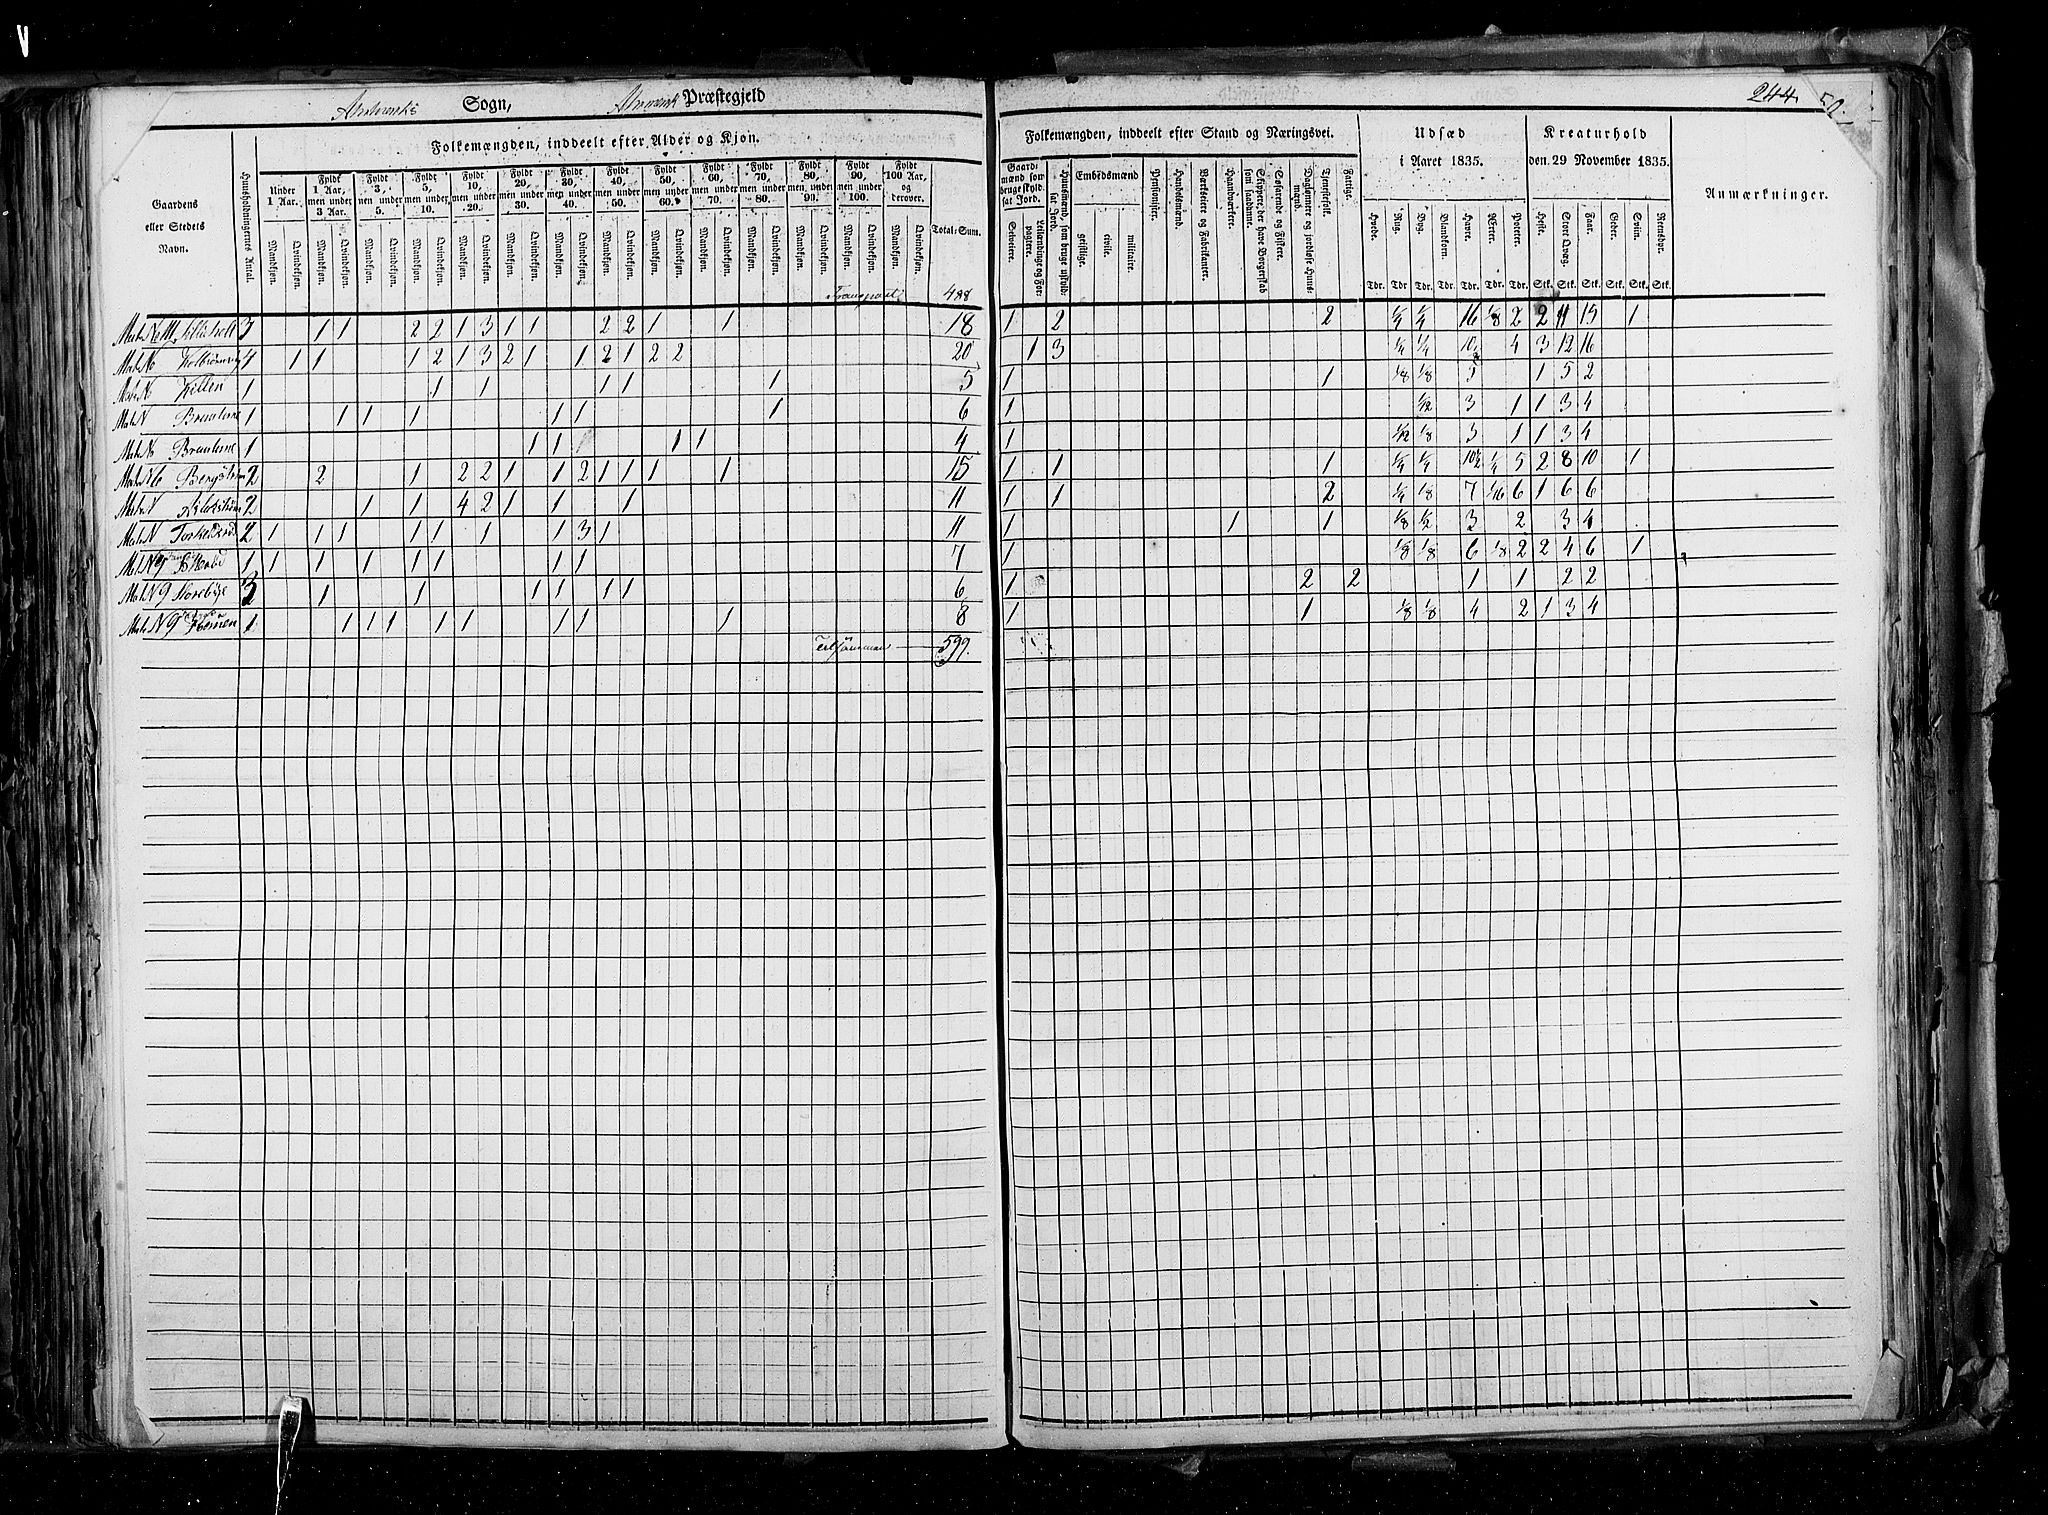 Sogn, Præstegjeld
244.
Folkemængden, inddeelt efter Alder og Kjøn.
Folkemængden, inddeelt efter Stand og Næringsvei.
Udsæd i Aaret 1835.
Kreaturhold den 29 November 1835.
Anmærkninger.
Gaardens eller Stedets Navn.
Huusholdningernes Antal.
Under 1 Aar.
Fyldt 1 Aar, men under 3 Aar.
Fyldt 3, men under 5.
Fyldt 5, men under 10.
Fyldt 10, men under 20.
Fyldt 20, men under 30.
Fyldt 30, men under 40.
Fyldt 40, men under 50.
Fyldt 50, men under 60.
Fyldt 60, men under 70.
Fyldt 70, men under 80.
Fyldt 80, men under 90.
Fyldt 90, men under 100.
Fyldt 100 Aar, og derover.
Mandkjøn. Qvindekjøn.
Total-Sum.
Gaardmænd som bruge skyldsat Jord.
Selveiere.
Leilændinge og Forpagtere.
Huusmænd, som bruge uskyldsat Jord.
Embedsmænd
geistlige.
civile.
militaire.
Pensionister.
Handelsmænd.
Værkseiere og Fabrikanter.
Haandværkere.
Skippere, der have Borgerskab som saadanne.
Søfarende og Fiskere.
Daglønnere og jordløse Huusmænd.
Tjenestefolk.
Fattige.
Hvede. Rug. Byg. Blandkorn. Havre. Erter. Poteter.
Tdr. Tdr. Tdr. Tdr. Tdr. Tdr. Tdr.
Heste. Stort Qvæg. Faar. Geder. Sviin. Rensdyr.
Stk. Stk. Stk. Stk. Stk. Stk.
Transport 488
3 1 1 2 2 1 3 1 1 2 2 1 1 18 1 2 2 1/4 1/4 16 1/8 2 2 11 15 1
4 1 1 1 2 1 3 2 1 1 2 1 2 2 20 1 3 1/4 1/4 10 4 3 12 16
1 1 1 1 1 1 5 1 1 1/8 1/8 3 1 5 2
1 1 1 1 1 1 1 6 1 1/2 3 1 1 3 4
1 1 1 1 1 4 1 1/12 1/8 3 1 1 3 4
2 2 1 2 2 1 1 2 1 1 1 1 15 1 1 1 1/4 1/4 10½ 1/4 5 2 8 10 1
2 1 1 4 2 1 1 1 11 1 1 2 1/4 1/8 7 1/16 6 1 6 6
2 1 1 1 1 1 1 1 3 1 11 1 1 1 1/8 1/2 3 2 3 4
1 1 1 1 1 1 1 1 7 1 1/8 1/8 6 1/8 2 2 4 6 1
Storebye 3 1 1 1 1 1 1 6 1 2 2 1 1 2 2
1 1 1 1 1 1 1 1 1 8 1 1 1/8 1/8 4 2 1 3 4
Tilsammen 599.